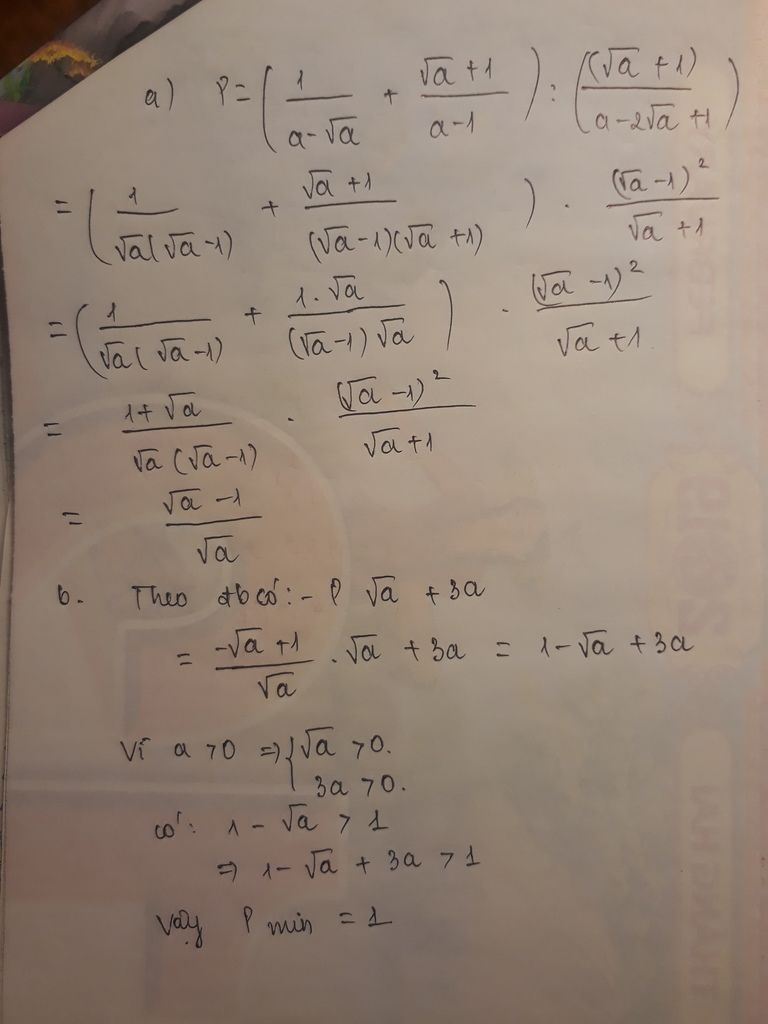 a) P = ( 1/(a-√a) + (√a +1)/(a-1) ) : ( (√a +1)/(a-2√a +1) )
= ( 1/(√a(√a-1)) + (√a +1)/((√a-1)(√a +1)) ) . (√a -1)²/(√a +1)
= ( 1/(√a(√a-1)) + (1.√a)/((√a-1)√a) ) . (√a -1)²/(√a +1)
= (1+√a)/(√a(√a-1)) . (√a -1)²/(√a+1)
= (√a -1)/√a
b. Theo đb có: - P √a + 3a
= (-√a +1)/√a . √a + 3a = 1-√a + 3a
Vì a > 0 => { √a > 0.
3a > 0.
có: 1 - √a > 1
=> 1-√a + 3a > 1
Vậy P min = 1